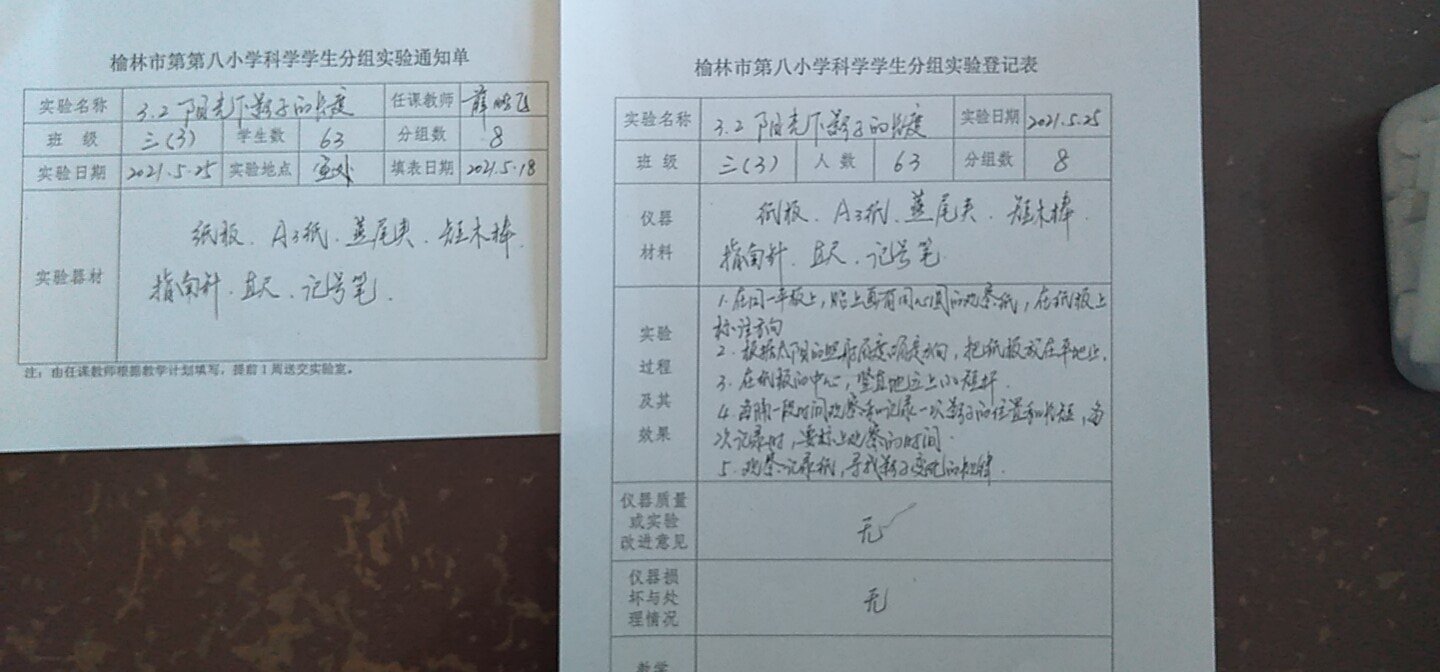 榆林市第第八小学科学学生分组实验通知单
实验名称 3.2 阳光下影子的长度 任课教师 薛
班 级 三(3) 学生数 63 分组数 8
实验日期 2021.5.25 实验地点 室外 填表日期 2021.5.18
实验器材
纸板、A3纸、燕尾夹、短木棒、
指南针、直尺、记号笔.
注：由任课教师根据教学计划填写，提前1周送交实验室。
榆林市第八小学科学学生分组实验登记表
实验名称 3.2 阳光下影子的长度 实验日期 2021.5.25
班 级 三(3) 人 数 63 分组数 8
仪器
材料
纸板、A3纸、燕尾夹、短木棒
指南针、直尺、记号笔.
实验
过程
及其
效果
1.在同一平板上，贴上画有同心圆的观察纸，在纸板上
标注方向
2.根据太阳的照射角度确定方向，把纸板放在平地上.
3.在纸板的中心，竖直地立上小短杆.
4.每隔一段时间观察和记录一次影子的位置和长短，每
次记录时，要标上观察的时间.
5.观察记录纸，寻找影子变化的规律.
仪器质量
或实验
改进意见
无
仪器损
坏与处
理情况
无
教学